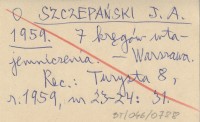 O SZCZEPAŃSKI J. A.
1959. 7 kręgów wta-
jemniczenia. – Warszawa.
Rec.: Turysta 8,
r. 1959, nr 23-24: 31.